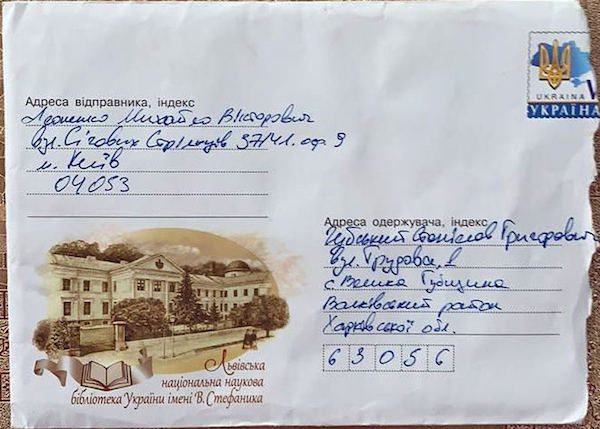 UKRAINA
УКРАЇНА
Адреса відправника, індекс
Михайло Вікторович
вул. Січових Стрільців 37/41. оф. 9
м. Київ
04053
Адреса одержувача, індекс
Станіслав Григорович
вул. Трудова,
с. Велика Губщина
Валківський район
Харківської обл.
63056
Львівська
національна наукова
бібліотека України імені В. Стефаника